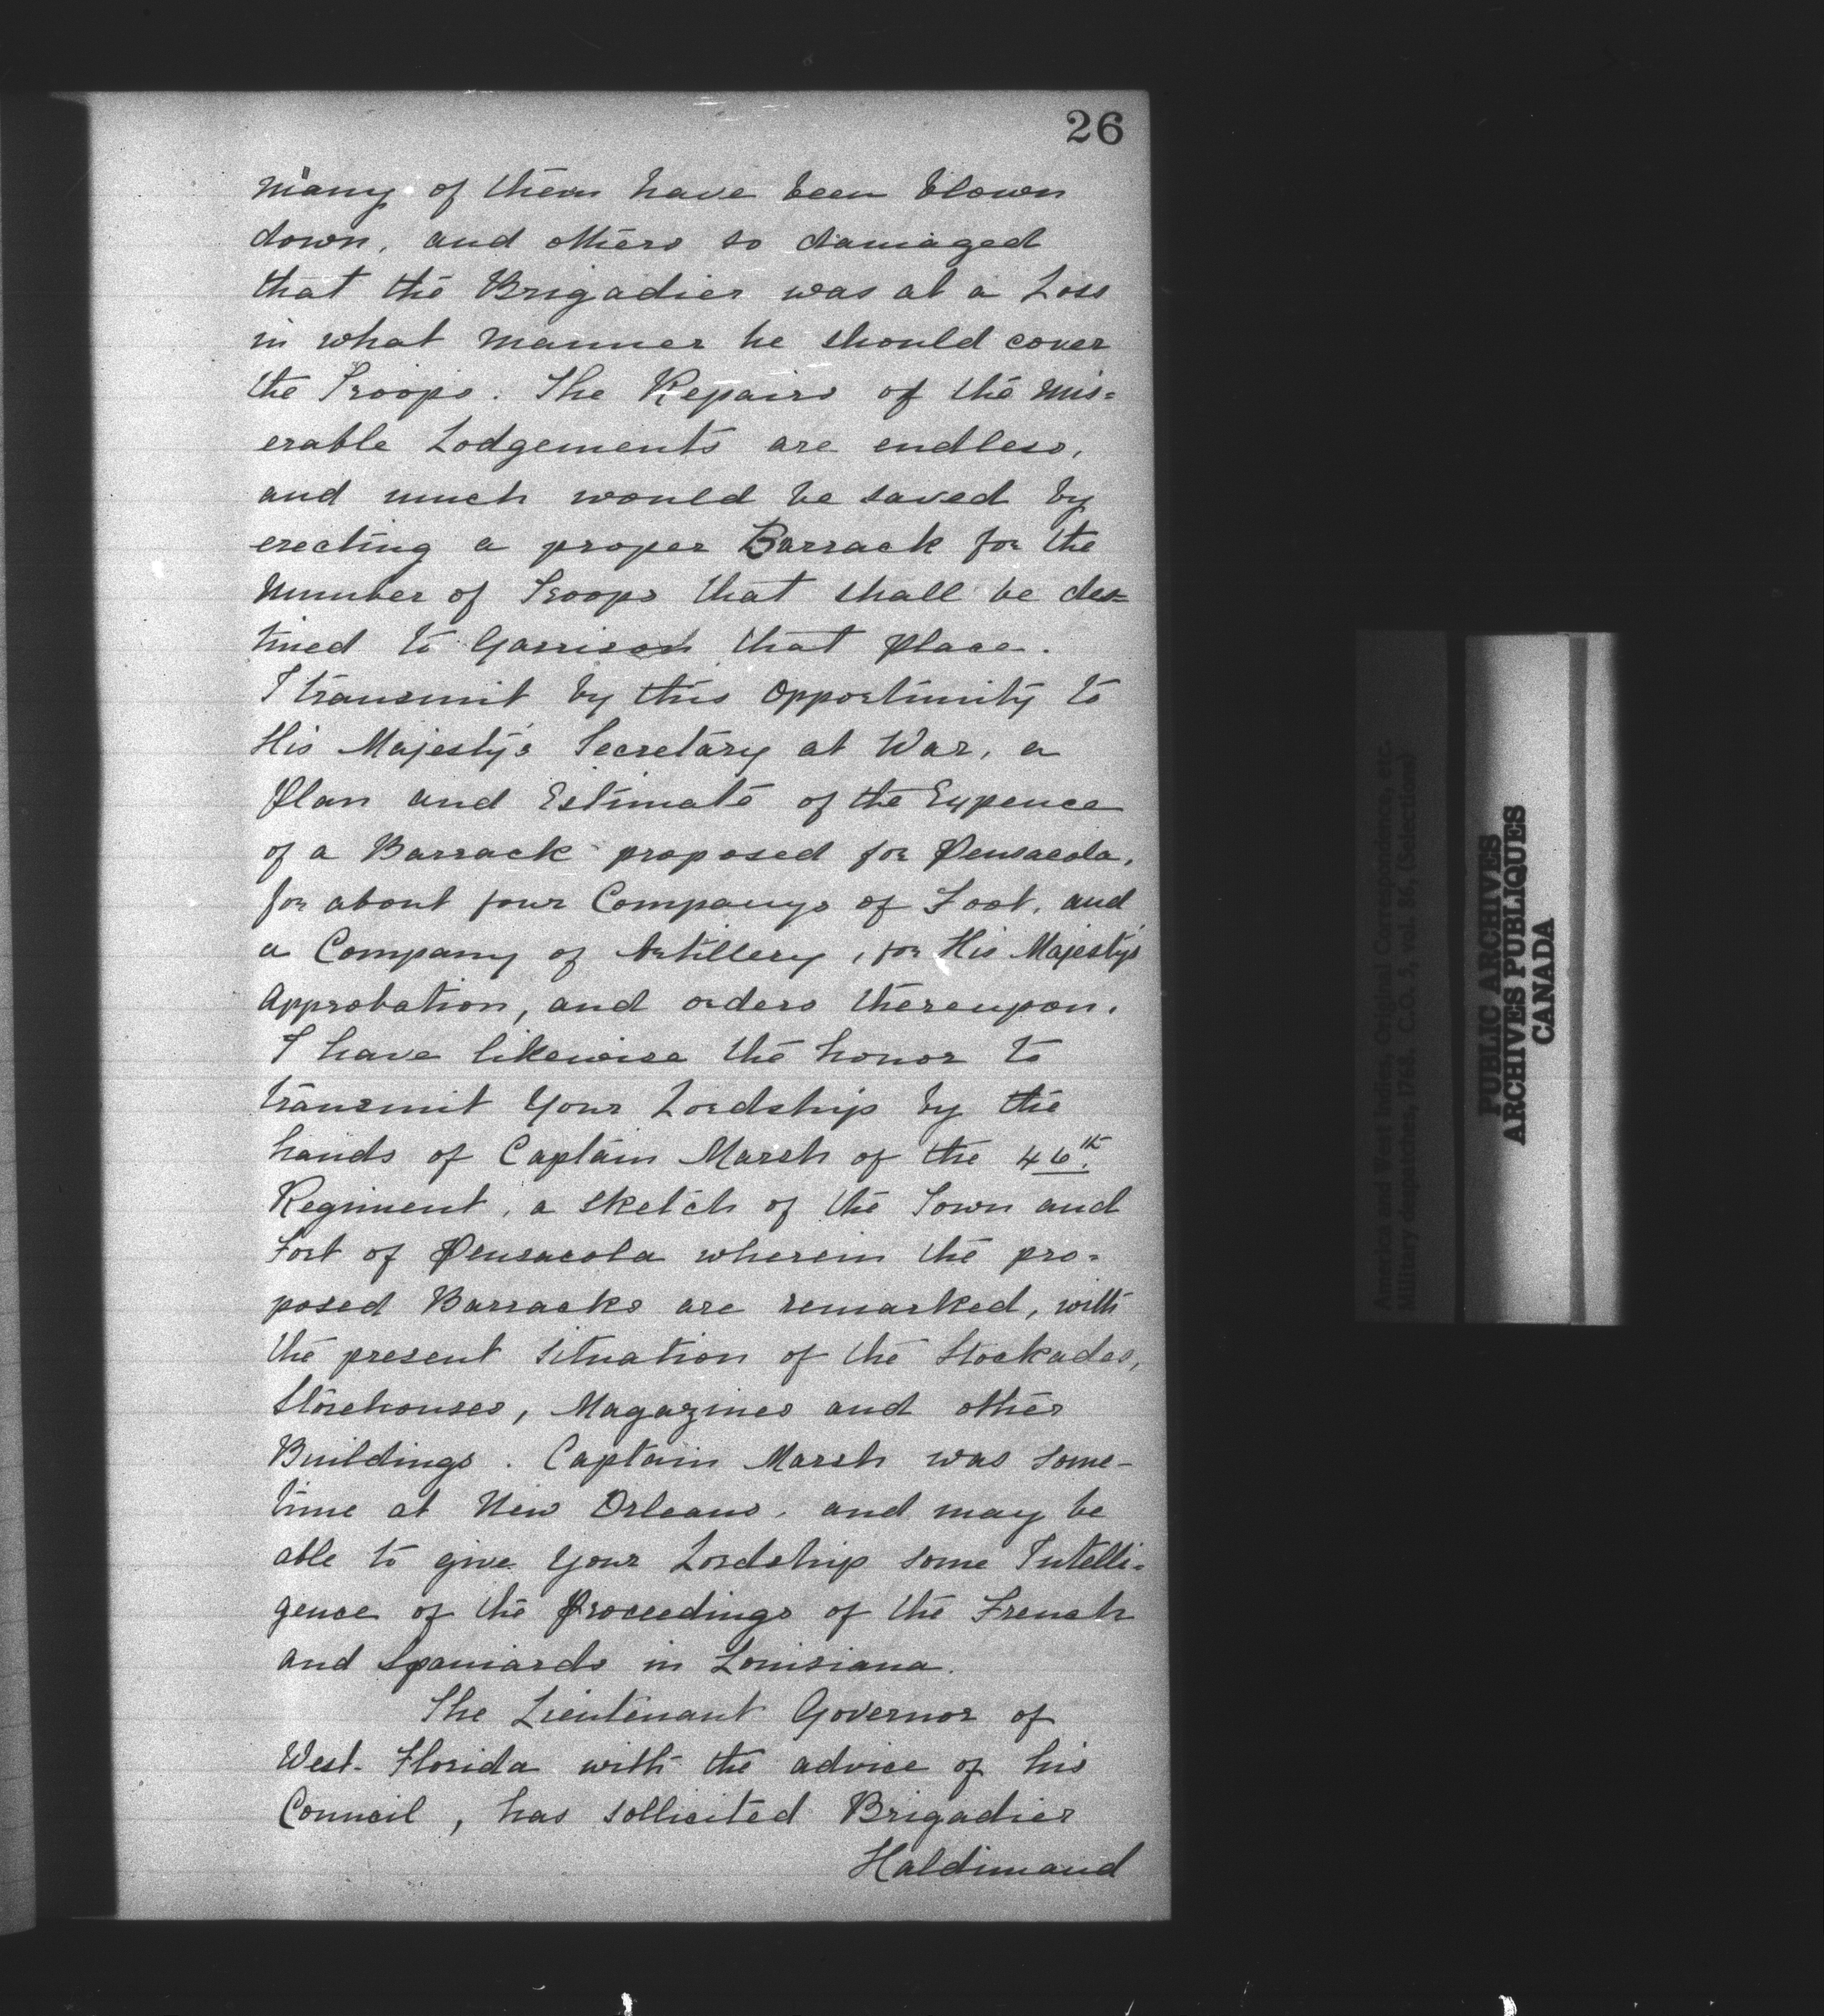 26
many of them have been blown
down, and others so damaged
that the Brigadier was at a Loss
in what manner he should cover
the Troops. The Repairs of the Mis=
erable Lodgements are endless,
and much would be saved by
erecting a proper Barrack for the
Number of Troops that shall be des=
tined to Garrison that Place.
I transmit by this Opportunity to
His Majesty's Secretary at War, a
Plan and Estimate of the Expence
of a Barrack proposed for Pensacola,
for about four Companys of Foot, and
a Company of Artillery, for His Majesty's
Approbation, and orders thereupon.
I have likewise the honor to
transmit Your Lordship by the
hands of Captain Marsh of the 46th
Regiment, a sketch of the Town and
Fort of Pensacola wherein the pro-
posed Barracks are remarked, with
the present Situation of the Stockades,
Storehouses, Magazines and other
Buildings. Captain Marsh was some-
time at New Orleans, and may be
able to give Your Lordship some Intelli-
gence of the Proceedings of the French
and Spaniards in Louisiana.
The Lieutenant Governor of
West-Florida with the advice of his
Council, has sollicited Brigadier
Haldimand
America and West Indies, Original Correspondence, etc.
Military despatches, 1768. C.O. 5, vol. 86, (Selections)
PUBLIC ARCHIVES
ARCHIVES PUBLIQUES
CANADA